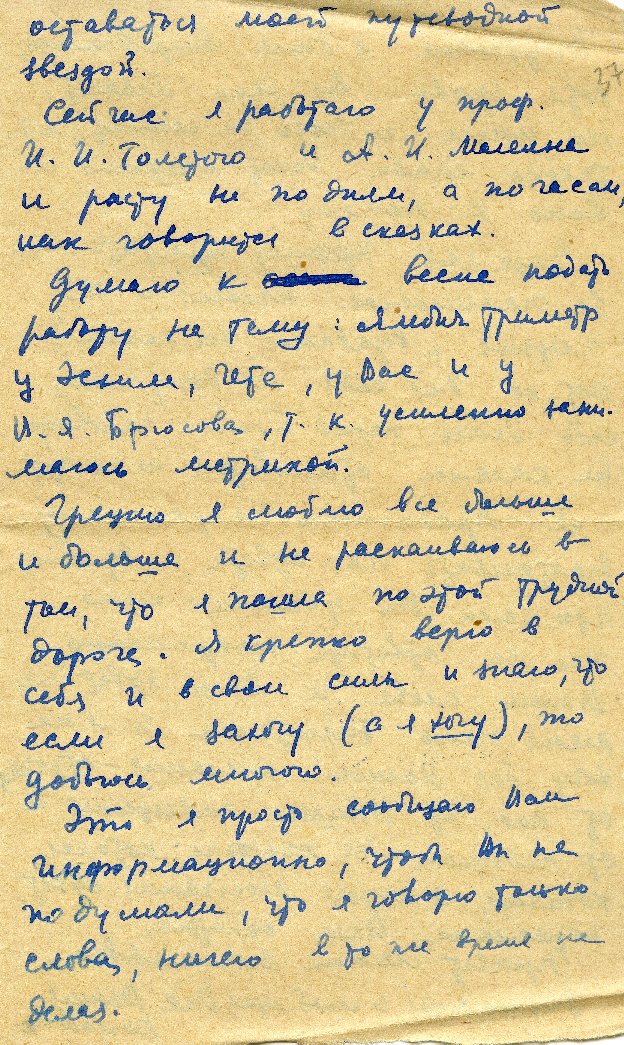 оставаться моей путеводной
звездой.
37
Сейчас я работаю у проф.
И. И. Толстого и А. И. Малеина
и расту не по дням, а по часам,
как говорится в сказках.
Думаю к весне подать
работу на тему: Ямбич. триметр
у Эсхила, Гёте, у Вас и у
В. Я. Брюсова, т. к. усиленно зани-
маюсь метрикой.
Грецию я люблю все больше
и больше и не раскаиваюсь в
том, что я пошла по этой трудной
дороге. Я крепко верю в
себя и в свои силы и знаю, что
если я захочу (а я хочу), то
добьюсь многого.
Это я просто сообщаю Вам
информационно, чтобы Вы не
подумали, что я говорю только
слова, ничего в то же время не
делая.